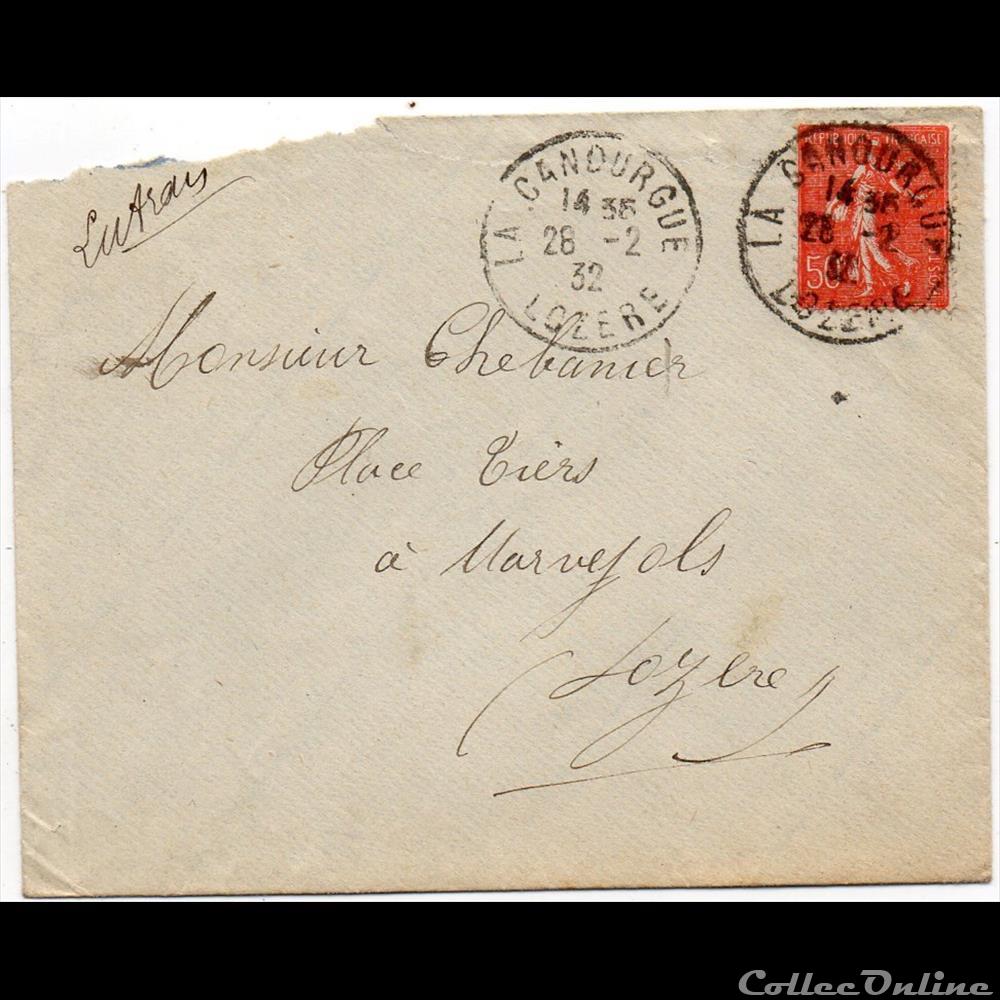 LA CANOURGUE
14 35
28 -2
32
LOZERE
REPUBLIQUE FRANCAISE
50
LA CANOURGUE
14 35
28 -2
32
LOZERE
Monsieur Chebanier
Place Tiers
à Marvejols
Lozère
CollecOnline